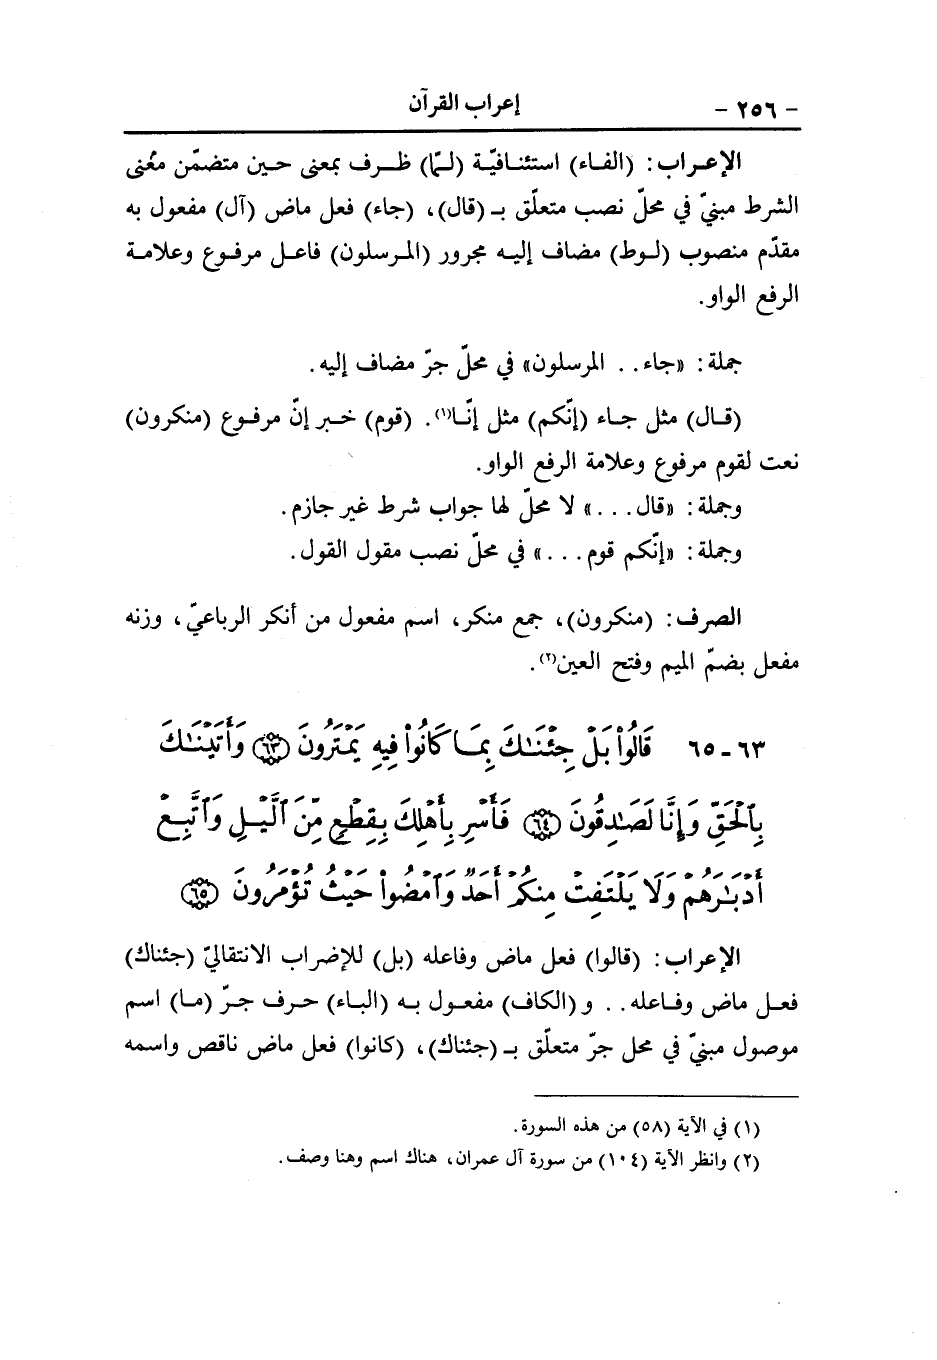 - ٢٥٦ - إعراب القرآن
الإعـراب: (الفـاء) استئنـافيّـة (لـمّا) ظـرف بمعنى حـين متضمّـن معْنى
الشرط مبنيّ في محلّ نصب متعلّق بـ (قال)، (جاء) فعل ماض (آل) مفعول به
مقدّم منصوب (لـوط) مضاف إليـه مجرور (المـرسلون) فاعـل مرفـوع وعلامـة
الرفع الواو.
جملة: «جاء.. المرسلون» في محلّ جرّ مضاف إليه.
(قـال) مثل جـاء (إنّكم) مثل إنّـا(١). (قوم) خـبر إنّ مرفـوع (منكرون)
نعت لقوم مرفوع وعلامة الرفع الواو.
وجملة: «قال...» لا محلّ لها جواب شرط غير جازم.
وجملة: «إنّكم قوم...» في محلّ نصب مقول القول.
الصرف: (منكرون)، جمع منكر، اسم مفعول من أنكر الرباعيّ، وزنه
مفعل بضمّ الميم وفتح العين(٢).
٦٣ - ٦٥ قَالُواْ بَلْ جِئْنَـٰكَ بِمَا كَانُواْ فِيهِ يَمْتَرُونَ ٦٣ وَأَتَيْنَـٰكَ
بِٱلْحَقِّ وَإِنَّا لَصَـٰدِقُونَ ٦٤ فَأَسْرِ بِأَهْلِكَ بِقِطْعٍ مِّنَ ٱلَّيْلِ وَٱتَّبِعْ
أَدْبَـٰرَهُمْ وَلَا يَلْتَفِتْ مِنكُمْ أَحَدٌ وَٱمْضُواْ حَيْثُ تُؤْمَرُونَ ٦٥
الإعراب: (قالوا) فعل ماض وفاعله (بل) للإضراب الانتقاليّ (جئناك)
فعـل ماض وفـاعله.. و (الكاف) مفعـول بـه (البـاء) حـرف جـرّ (مـا) اسم
موصول مبنيّ في محل جرّ متعلّق بـ (جئناك)، (كانوا) فعل ماض ناقص واسمه
(١) في الآية (٥٨) من هذه السورة.
(٢) وانظر الآية (١٠٤) من سورة آل عمران، هناك اسم وهنا وصف.